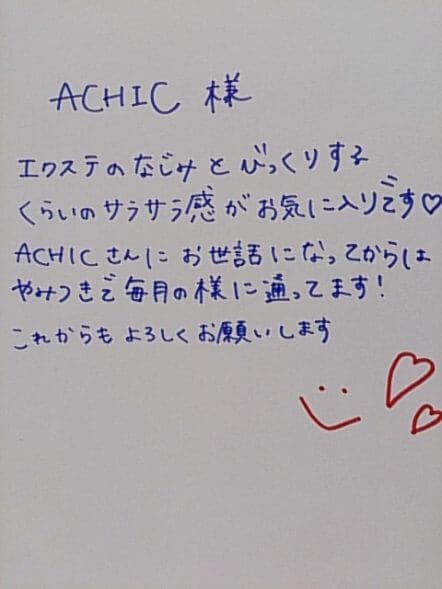 ACHIC 様
エクステのなじみとびっくりする
くらいのサラサラ感がお気に入りです♡
ACHICさんにお世話になってからは
やみつきで毎月の様に通ってます!
これからもよろしくお願いします